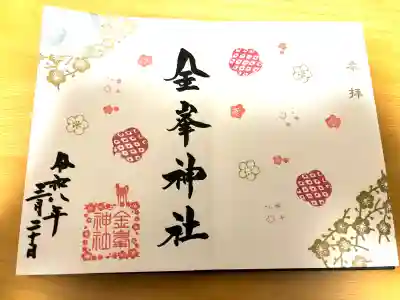 奉拝
金峯神社
金峯
神社
令和八年
三月二十日